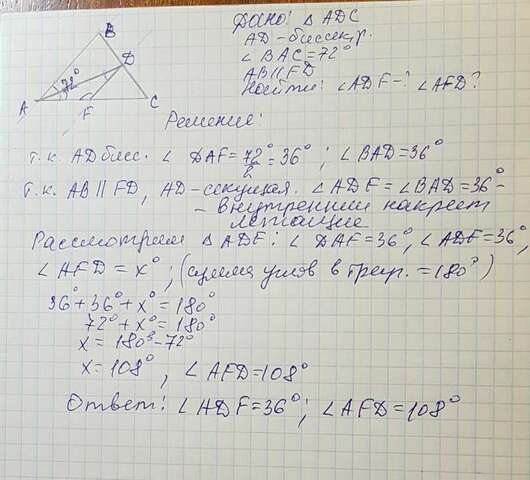 B
D
72°
A
F
C
Дано: Δ ADC
AD - биссектр.
∠ BAC = 72°
AB || FD
Найти: ∠ ADF - ? ∠ AFD ?
Решение:
т.к. AD бисс. ∠ DAF = 72°/2 = 36° ; ∠ BAD = 36°
т.к. AB || FD, AD - секущая. ∠ ADF = ∠ BAD = 36° -
- внутренние накрест
лежащие
Рассмотрим Δ ADF: ∠ DAF = 36°, ∠ ADF = 36°,
∠ AFD = x° ; (сумма углов в треуг. = 180°)
36° + 36° + x° = 180°
72° + x° = 180°
x = 180° - 72°
x = 108° , ∠ AFD = 108°
Ответ: ∠ ADF = 36° ; ∠ AFD = 108°